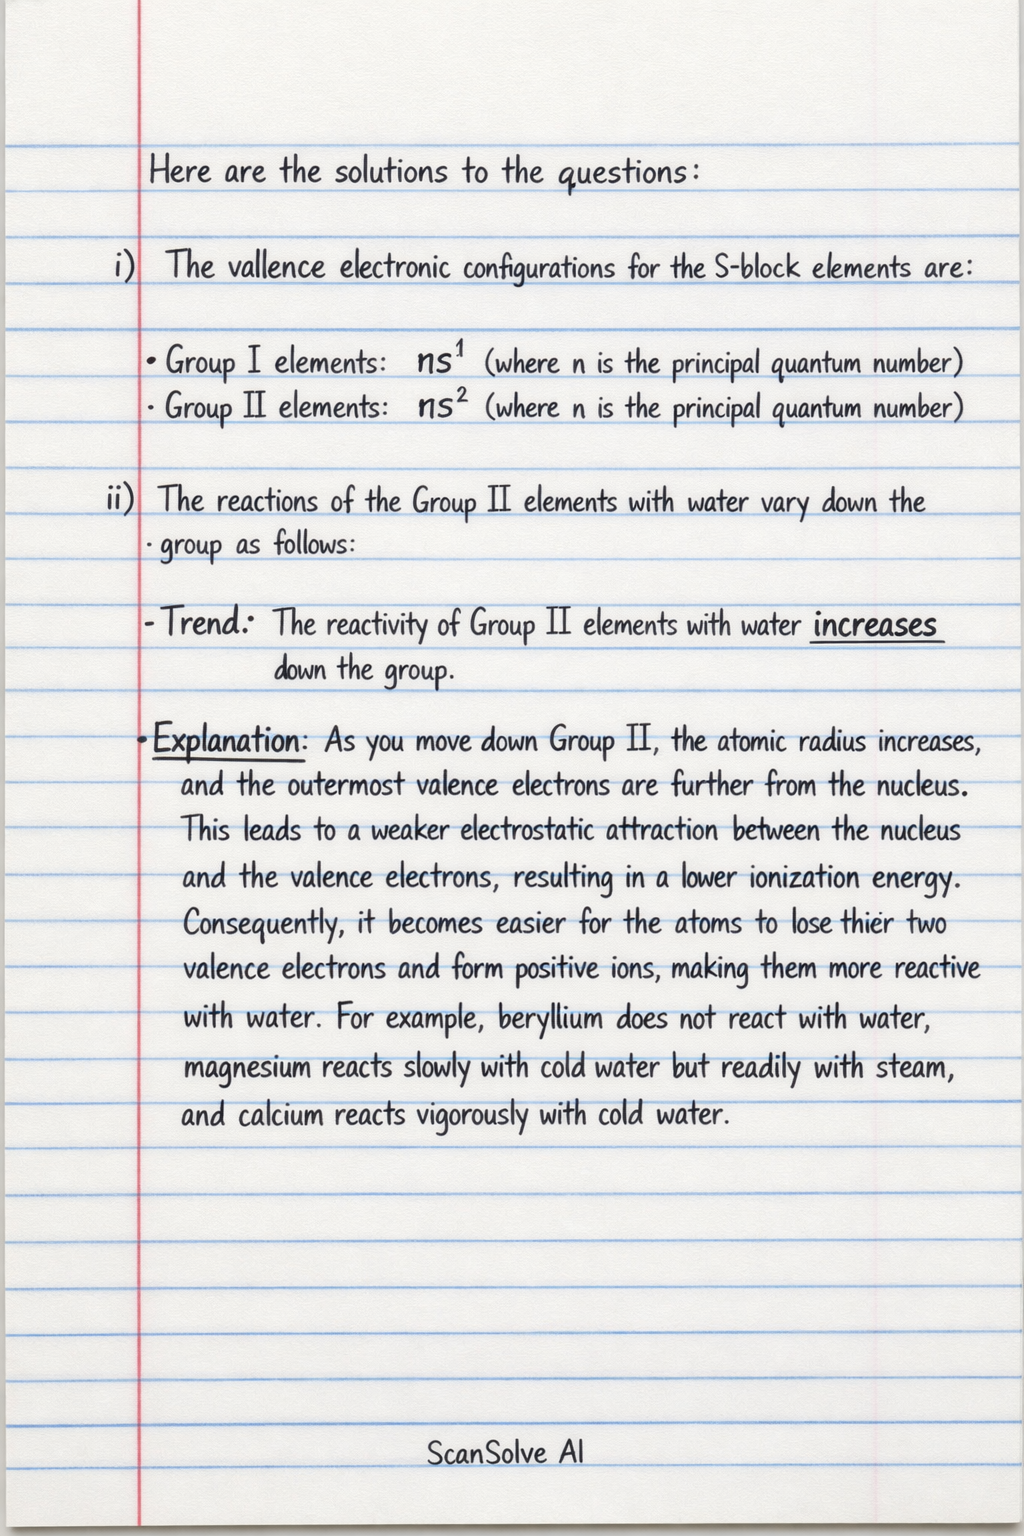 Here are the solutions to the questions:
i) The vallence electronic configurations for the S-block elements are:
• Group I elements: ns¹ (where n is the principal quantum number)
· Group II elements: ns² (where n is the principal quantum number)
ii) The reactions of the Group II elements with water vary down the
· group as follows:
- Trend: The reactivity of Group II elements with water increases
down the group.
• Explanation: As you move down Group II, the atomic radius increases,
and the outermost valence electrons are further from the nucleus.
This leads to a weaker electrostatic attraction between the nucleus
and the valence electrons, resulting in a lower ionization energy.
Consequently, it becomes easier for the atoms to lose thier two
valence electrons and form positive ions, making them more reactive
with water. For example, beryllium does not react with water,
magnesium reacts slowly with cold water but readily with steam,
and calcium reacts vigorously with cold water.
ScanSolve AI